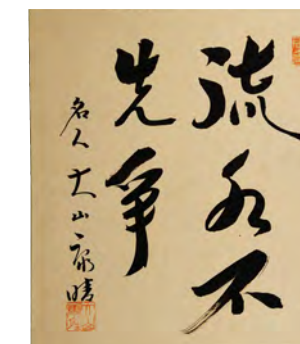 流水不
争先
名人 大山康晴